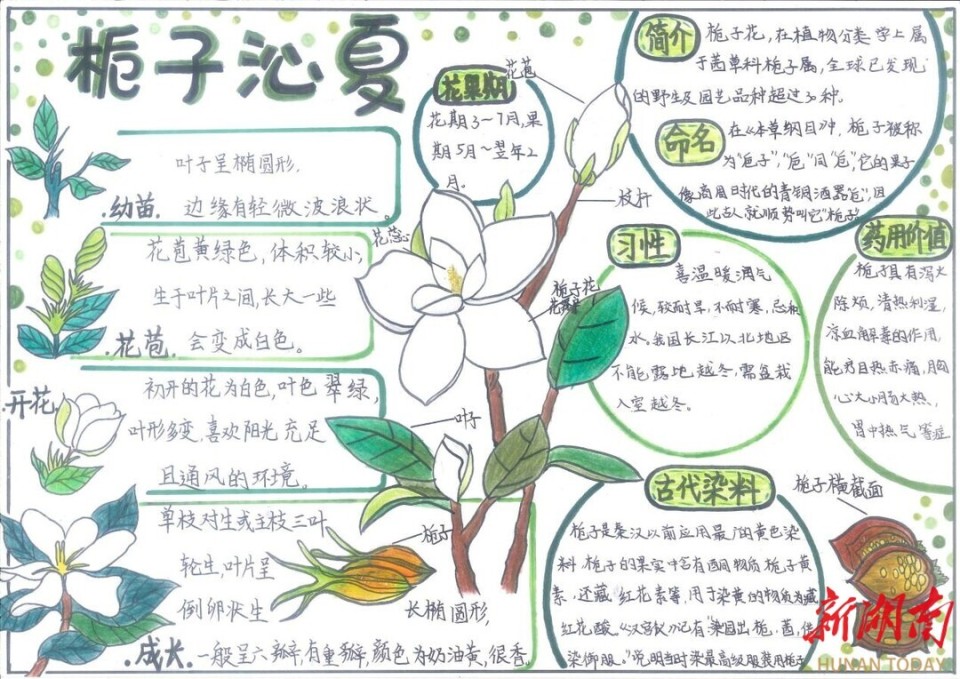 栀子沁夏
叶子呈椭圆形,
边缘有轻微波浪状。
.幼苗.
花苞黄绿色,体积较小,
生于叶片之间,长大一些
会变成白色。
.花苞.
.开花
初开的花为白色,叶色翠绿,
叶形多变,喜欢阳光充足
且通风的环境。
单枝对生或主枝三叶
轮生,叶片呈
倒卵状生
.成长.
一般呈六瓣,有重瓣,颜色为奶油黄,很香
花果期
花期3~7月,果
期5月~翌年2
月。
花苞
枝杆
花蕊
栀子花
叶子
栀子
长椭圆形,
简介
栀子花,在植物分类学上属
于茜草科栀子属,全球已发现
的野生及园艺品种超过30种。
命名
在《本草纲目》中,栀子被称
为"卮子","卮"同"巵",它的果子
像商周时代的青铜酒器卮",因
此古人就顺势叫它"栀子
习性
喜温暖润气
候,较耐旱,不耐寒,忌积
水。我国长江以北地区
不能露地越冬,需盆栽
入室越冬。
药用价值
栀子具有泻火
除烦,清热利湿,
凉血解毒的作用,
能疗目热赤痛,胸
心大小肠大热,
胃中热气等症
古代染料
栀子是秦汉以前应用最广的黄色染
料,栀子的果实中含有酒用物质栀子黄
素,还藏红花素等,用于染黄的物质为藏
红花酸。《汉官仪》记有"染园出栀,茜,供
染御服。"说明当时染最高级服装用栀子
栀子横截面
新湖南
HUNAN TODAY